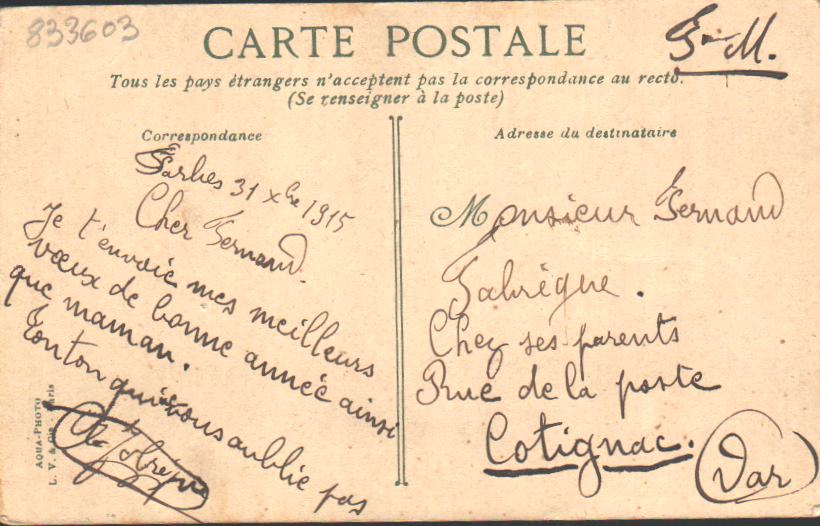 833603
CARTE POSTALE
F M.
Tous les pays étrangers n'acceptent pas la correspondance au recto.
(Se renseigner à la poste)
Correspondance
Adresse du destinataire
Tarbes 31 Xbre 1915
Cher Fernand.
Je t'envoie mes meilleurs
vœux de bonne année ainsi
que maman.
Tonton qui vous aublie pas
Monsieur Fernand
Fabrègue.
Chez ses parents
Rue de la poste
Cotignac.
(Var)
AQUA-PHOTO
L. V. & Cie - Paris